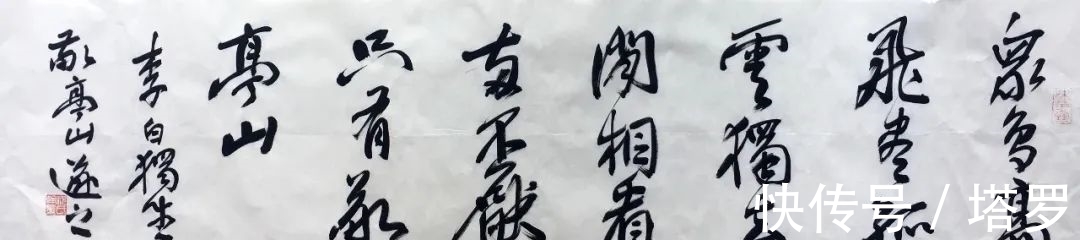 眾鳥高
飛盡孤
雲獨去
閑相看
兩不厭
只有敬
亭山
李白獨坐
敬亭山
快传号 / 塔罗